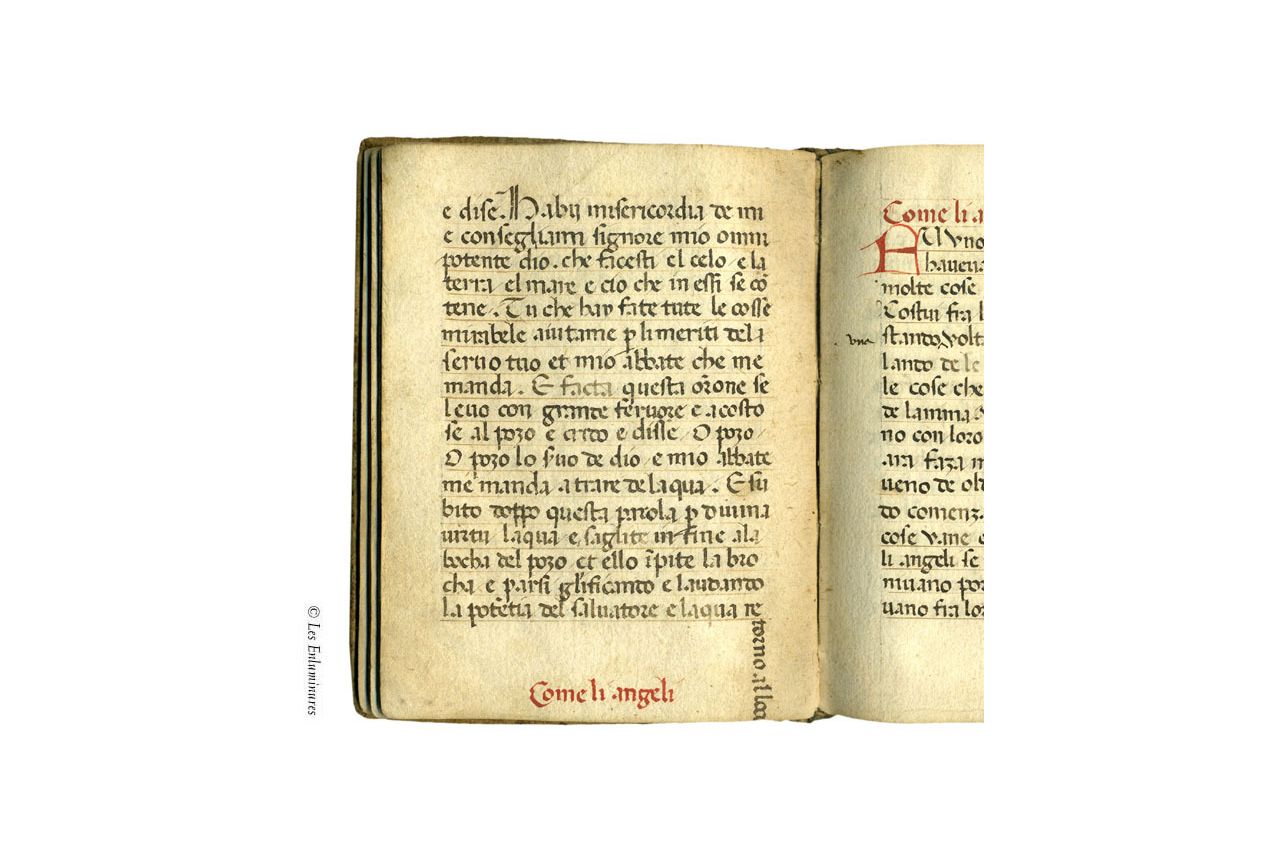 e dise. Habii misericordia de mi
e consegliami signore mio omni
potente dio. che facesti el celo e la
terra el mare e cio che in essi se cō
tene. Tu che hay fate tute le cosse
mirabele aiutame p li meriti deli
seruo tuo et mio abbate che me
manda. E facta questa orōne se
leuo con grande feruore e acosto
se al pozo e crido e disse. O pozo
O pozo lo s'uo de dio e mio abbate
me manda a trare de laqua. E su
bito doppo questa parola p diuina
uirtu laqua e saglite in fine ala
bocha del pozo et ello īpite la bro
cha e parsi glīficando e laudando
la potētia del saluatore e laqua re
torno al loco
Come li angeli
Come li a
FU Vno
haueua
molte cose
Costui fra l
stando volt
vna
lando de le
le cose che
de lamma
no con loro
ara faza m
ueno de ol
do comenz
cose vane
li angeli se
niuano por
uano fra lor
© Les Enluminures